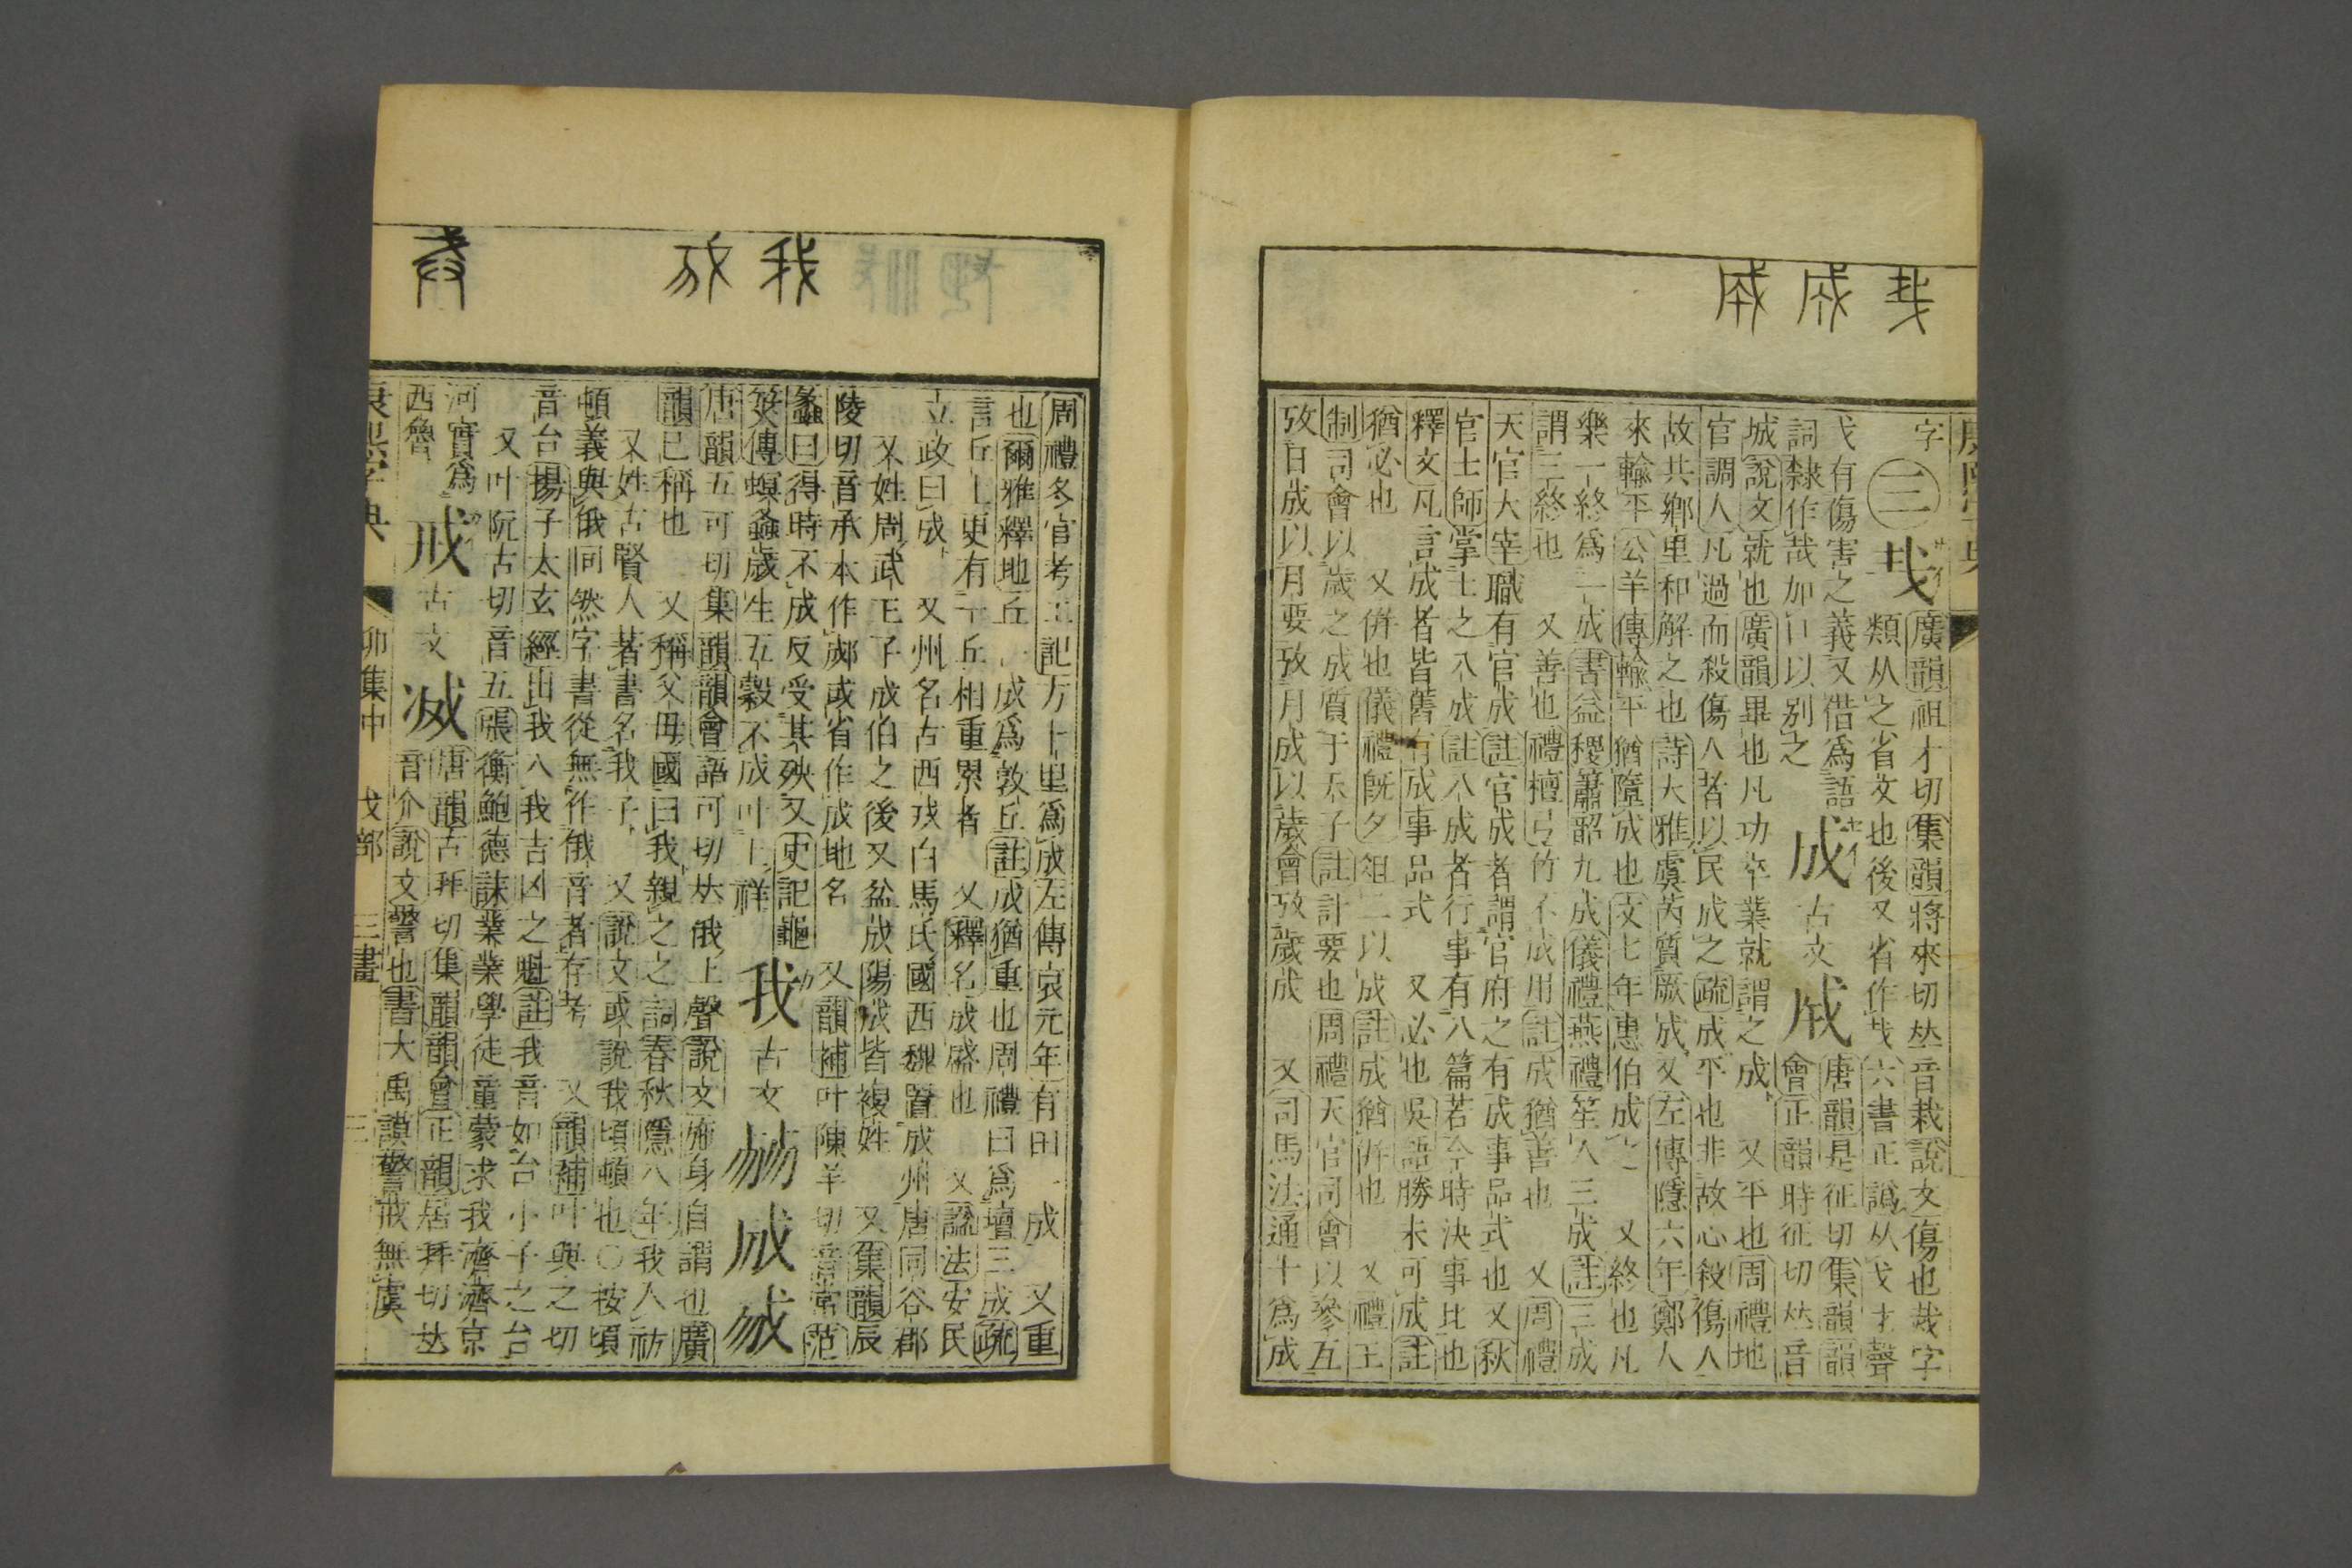 字
㊂
𢦏
廣韻祖才切集韻將來切𠀤音栽說文傷也烖字
類从之省文也後又省作𢦏六書正譌从戈才聲
戈有傷害之義又借爲語
詞隸作哉加口以別之
成
古文
𢦩
唐韻是征切集韻韻
會正韻時征切𠀤音
城說文就也廣韻畢也凡功卒業就謂之成 又平也周禮地
官調人凡過而殺傷人者以民成之疏成平也非故心殺傷人
故共鄉里和解之也詩大雅虞芮質厥成又左傳隱六年鄭人
來輸平公羊傳輸平猶隳成也文七年惠伯成之 又終也凡
樂一終爲一成書益稷簫韶九成儀禮燕禮笙入三成註三成
謂三終也 又善也禮檀弓竹不成用註成猶善也 又周禮
天官大宰職有官成註官成者謂官府之有成事品式也又秋
官士師掌士之八成註八成者行事有八篇若今時決事比也
釋文凡言成者皆舊有成事品式 又必也吳語勝未可成註
猶必也 又倂也儀禮旣夕俎二以成註成猶倂也 又禮王
制司會以歲之成質于天子註計要也周禮天官司會以參互
攷日成以月要攷月成以歲會攷歲成 又司馬法通十爲成
周禮冬官考工記方十里爲成左傳哀元年有田一成 又重
也爾雅釋地丘一成爲敦丘註成猶重也周禮曰爲壇三成疏
言丘上更有一丘相重累者 又釋名成盛也 又諡法安民
立政曰成 又州名古西戎白馬氏國西魏置成州唐同谷郡
又姓周武王子成伯之後又盆成陽成皆複姓 又集韻辰
陵切音承本作郕或省作成地名 又韻補叶陳羊切音常范
蠡曰得時不成反受其殃又史記龜
筴傳螟螽歲生五穀不成叶上祥
我
古文
𢦠
𢦐
𢦓
唐韻五可切集韻韻會語可切𠀤俄上聲說文施身自謂也廣
韻己稱也 又稱父母國曰我親之之詞春秋隱八年我入祊
又姓古賢人著書名我子 又說文或說我頃頓也○按頃
頓義與俄同然字書從無作俄音者存考 又韻補叶與之切
音台揚子太玄經出我入我吉凶之魁註我音如台小子之台
又叶阮古切音五張衡鮑德誄業業學徒童蒙求我濟濟京
河實爲
西魯
戒
古文
烕
唐韻古拜切集韻韻會正韻居拜切𠀤
音介說文警也書大禹謨警戒無虞
康熙字典
卯集中 戈部 三畫
三